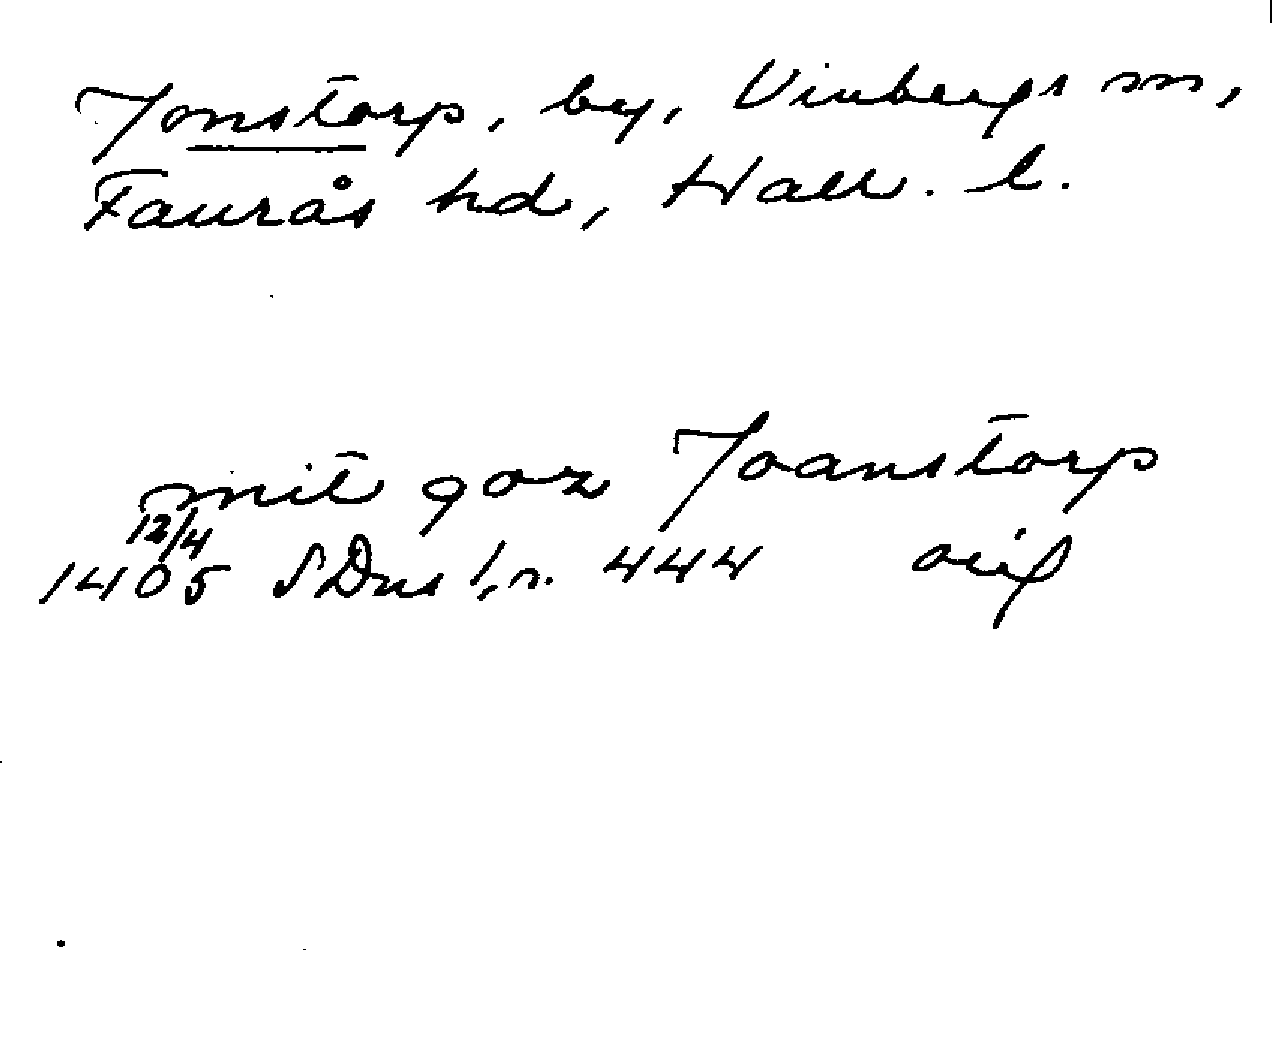 Jonstorp, by, Vinbergs sn,
Faurås hd, Hall. l.
mit goz Joanstorp
12/4
1405 SDns 1, s. 444 orig